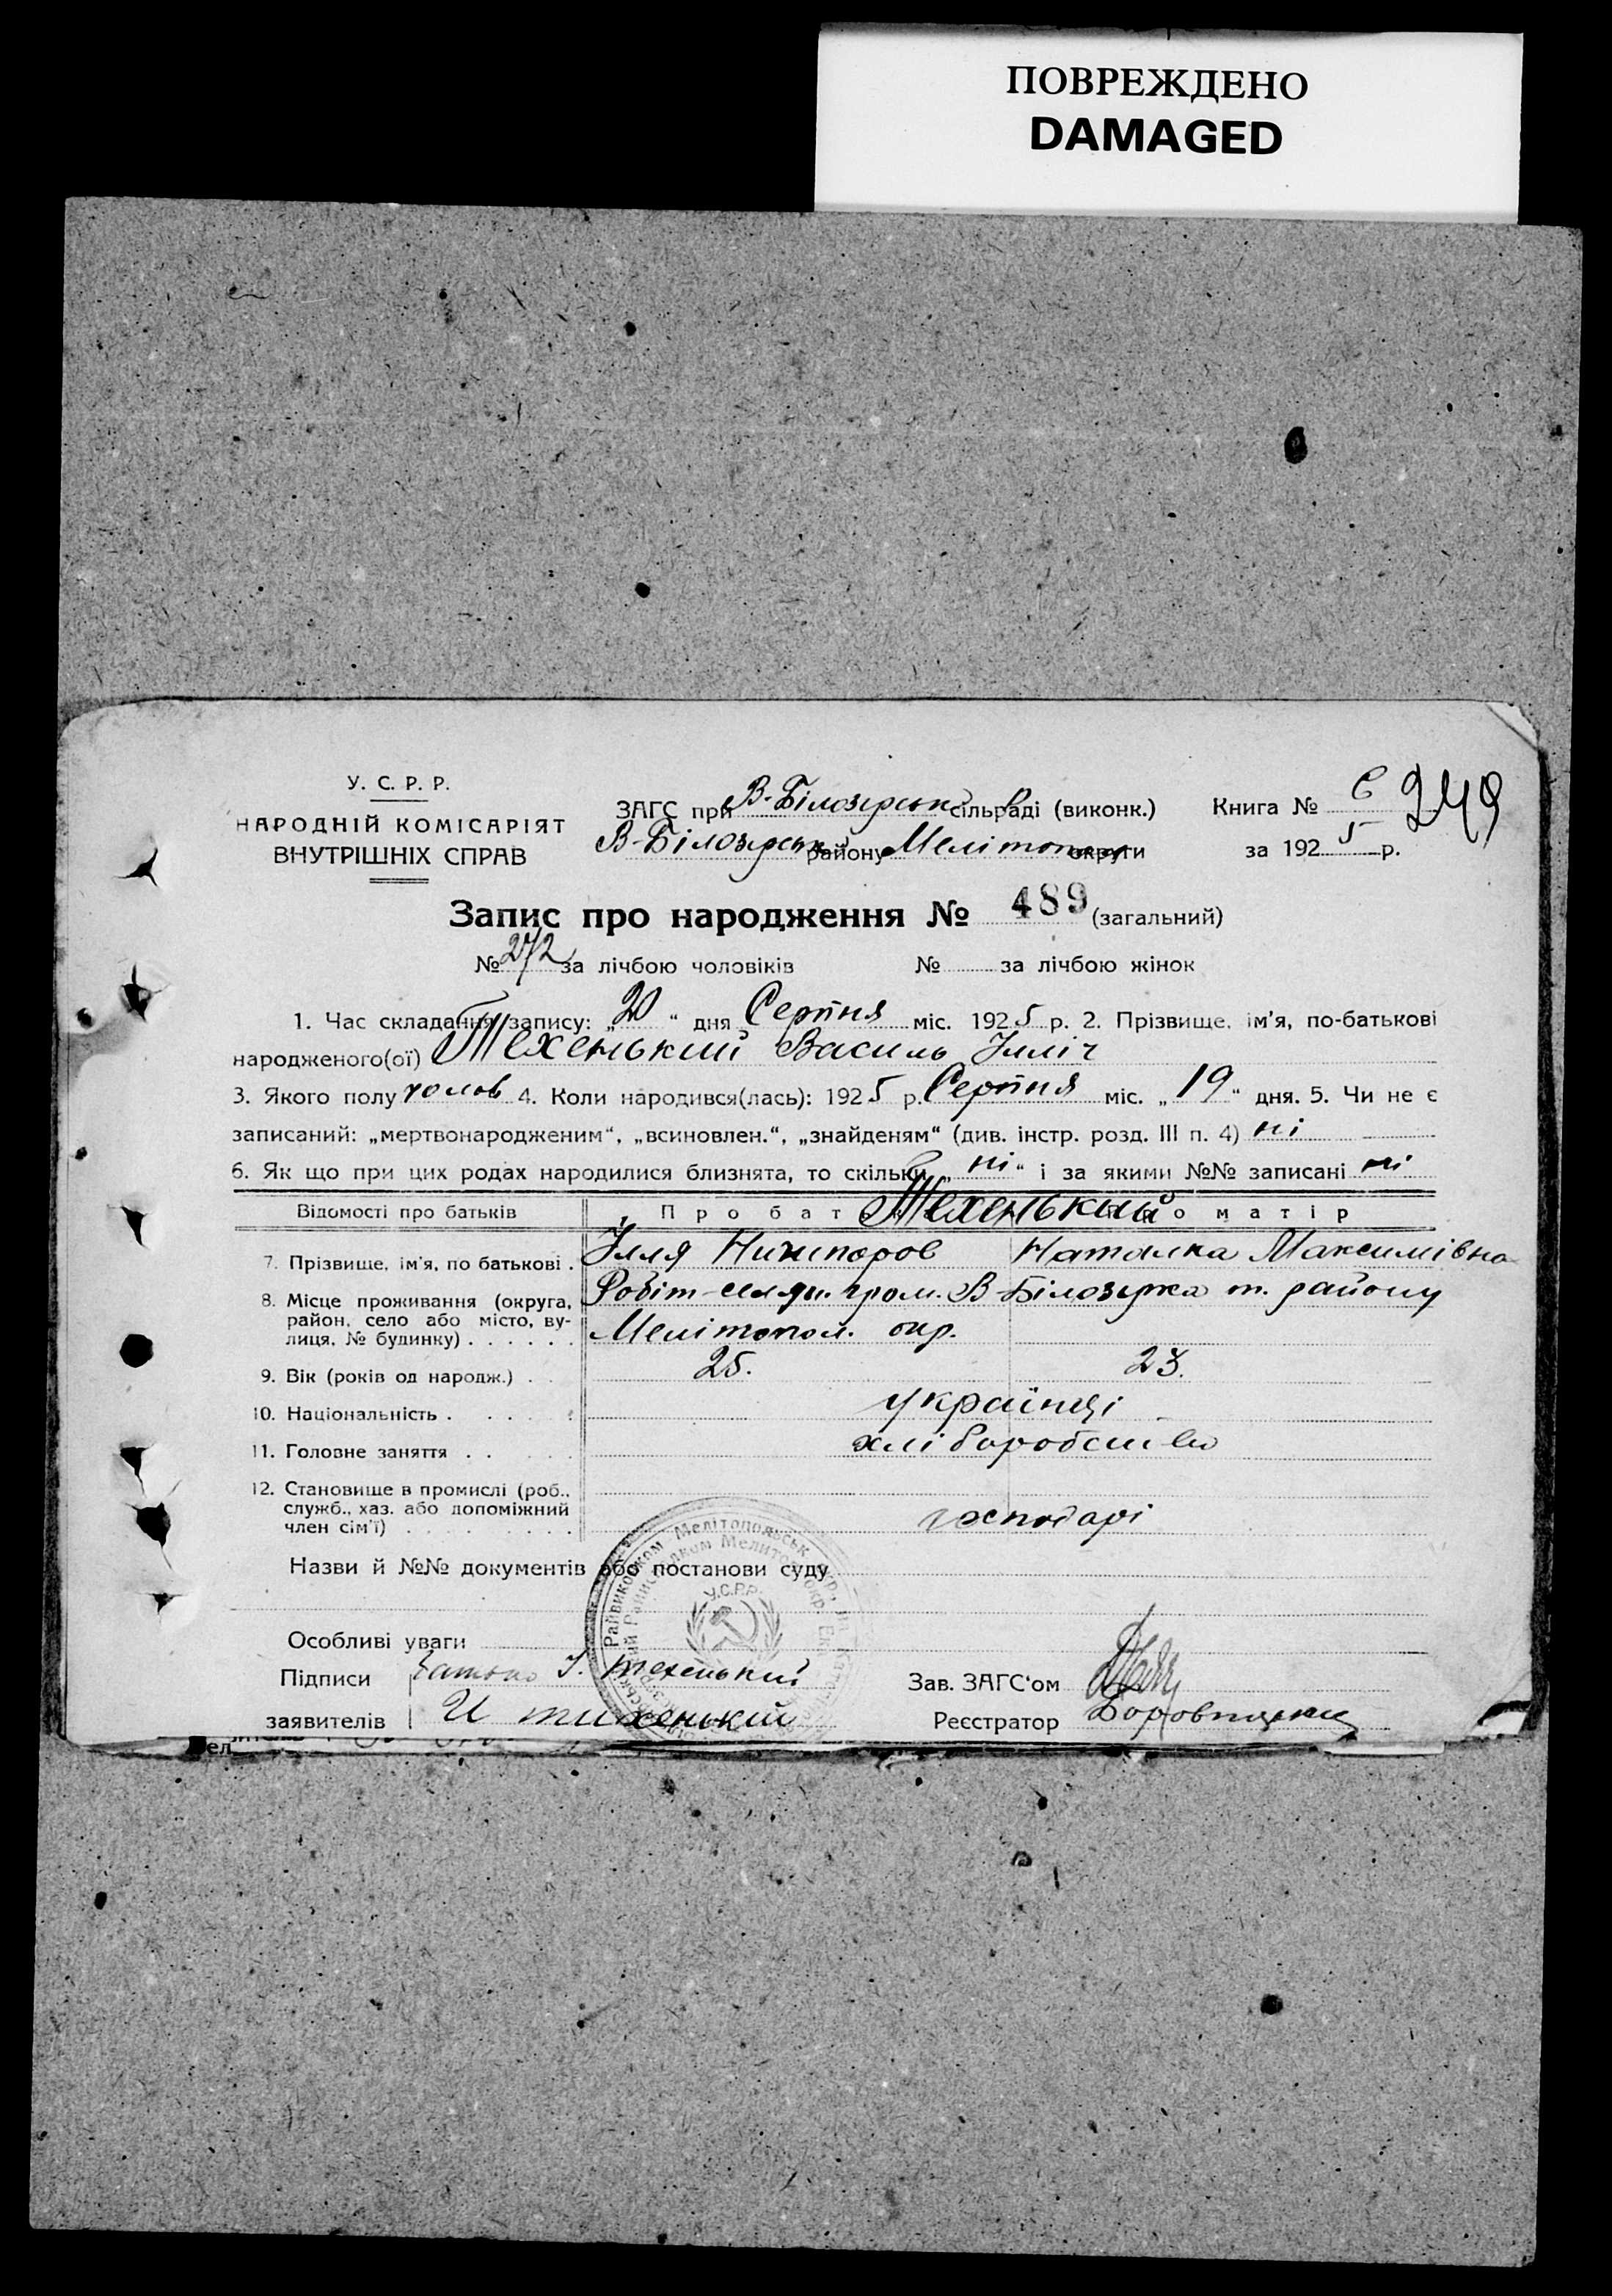 ПОВРЕЖДЕНО
DAMAGED
У. С. Р. Р.
НАРОДНІЙ КОМІСАРІЯТ
ВНУТРІШНІХ СПРАВ
ЗАГС при В-Білозерськ сільраді (виконк.)
В-Білозерськ району Мелітопол округи
Книга № 6 249
за 1925 р.
Запис про народження № 489 (загальний)
№ 272 за лічбою чоловіків № за лічбою жінок
1. Час складання запису: „20“ дня Серпня міс. 1925 р. 2. Прізвище, ім'я, по-батькові
народженого(ої) Техенький Василь Ілліч
3. Якого полу чолов 4. Коли народився(лась): 1925 р. Серпня міс. „19“ дня. 5. Чи не є
записаний: „мертвонародженим“, „всиновлен.“, „знайденям“ (див. інстр. розд. III п. 4) ні
6. Як що при цих родах народилися близнята, то скільки „ні“ і за якими №№ записані ні
Відомості про батьків Про бать Техенький о матір
7. Прізвище, ім'я, по батькові . Ілля Ничипоров Наталка Максимівна
8. Місце проживання (округа, район, село або місто, вулиця, № будинку) . . . . . . Робіт-селян. гром. В-Білозерка т. району
Мелітопол. окр.
9. Вік (років од народж.) . . 25. 23.
10. Національність . . . . . . українці
11. Головне заняття . . . . . хліборобство
12. Становище в промислі (роб.,
служб., хаз. або допоміжний
член сім'ї) . . . . . . . . . господарі
Назви й №№ документів або постанови суду
Особливі уваги
Підписи Батько І. Техенький Зав. ЗАГС'ом
заявителів И тихенькій Реєстратор
У.С.Р.Р.